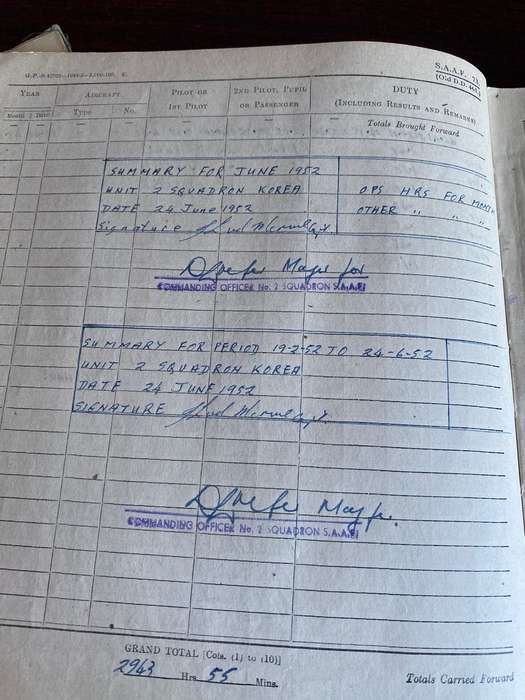 S.A.A.F. 71
YEAR
AIRCRAFT
PILOT OR
1ST PILOT
2ND PILOT, PUPIL
OR PASSENGER
DUTY
(INCLUDING RESULTS AND REMARKS)
Month
Date
Type
No.
Totals Brought Forward
SUMMARY FOR JUNE 1952
UNIT 2 SQUADRON KOREA
OPS HRS FOR MONTH
DATE 24 June 1952
OTHER " " "
Signature
Major for
COMMANDING OFFICER No. 2 SQUADRON S.A.A.F.
SUMMARY FOR PERIOD 19-2-52 TO 24-6-52
UNIT 2 SQUADRON KOREA
DATE 24 JUNE 1952
SIGNATURE
COMMANDING OFFICER No. 2 SQUADRON S.A.A.F.
GRAND TOTAL [Cols. (1) to (10)]
2943 Hrs. 55 Mins.
Totals Carried Forward